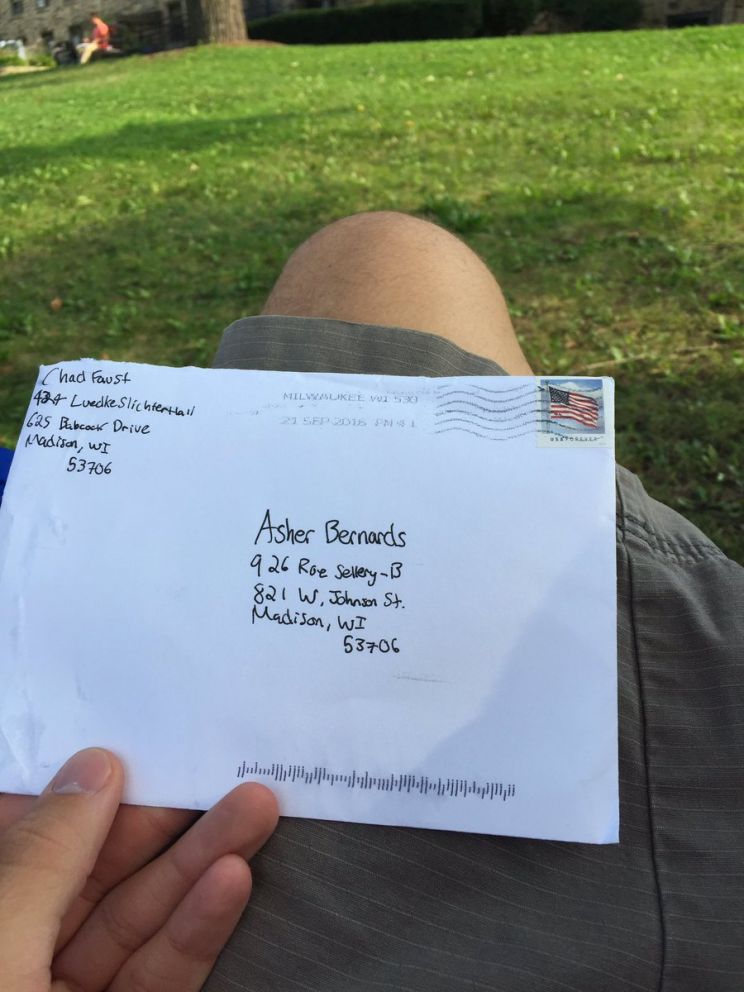 Chad Faust
434 Luedke Slichter Hall
625 Babcock Drive
Madison, WI
53706
MILWAUKEE WI 530
21 SEP 2016 PM 4 L
USA FOREVER
Asher Bernards
926 Roe Sellery-B
821 W. Johnson St.
Madison, WI
53706